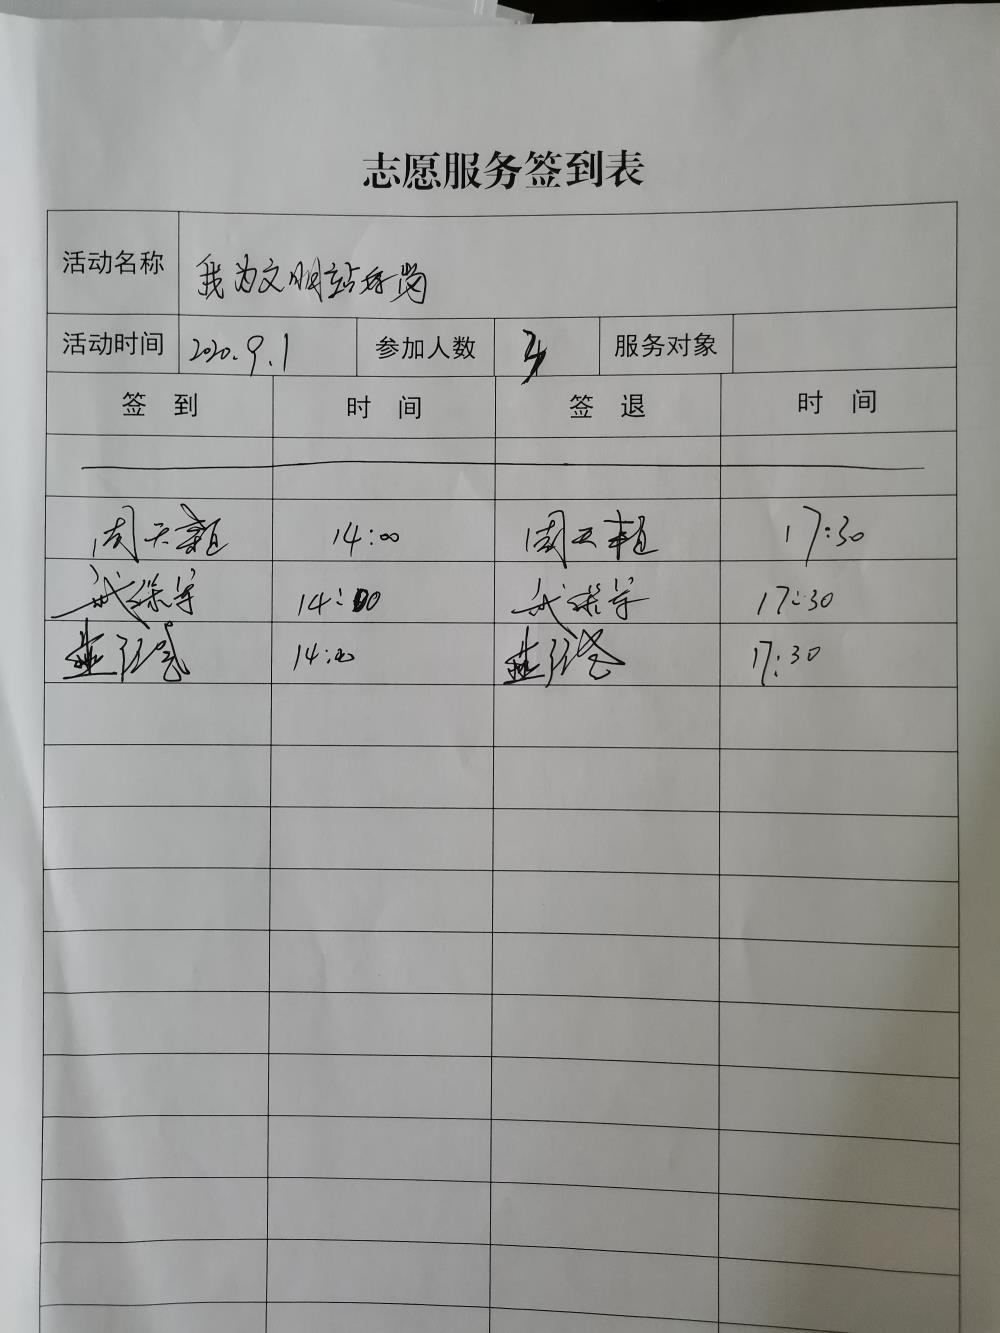 志愿服务签到表
活动名称 我为文明站好岗
活动时间 2020.9.1 参加人数 服务对象
签 到 时 间 签 退 时 间
周天 14:00 周天 17:30
武 14:00 武 17:30
14:00 17:30